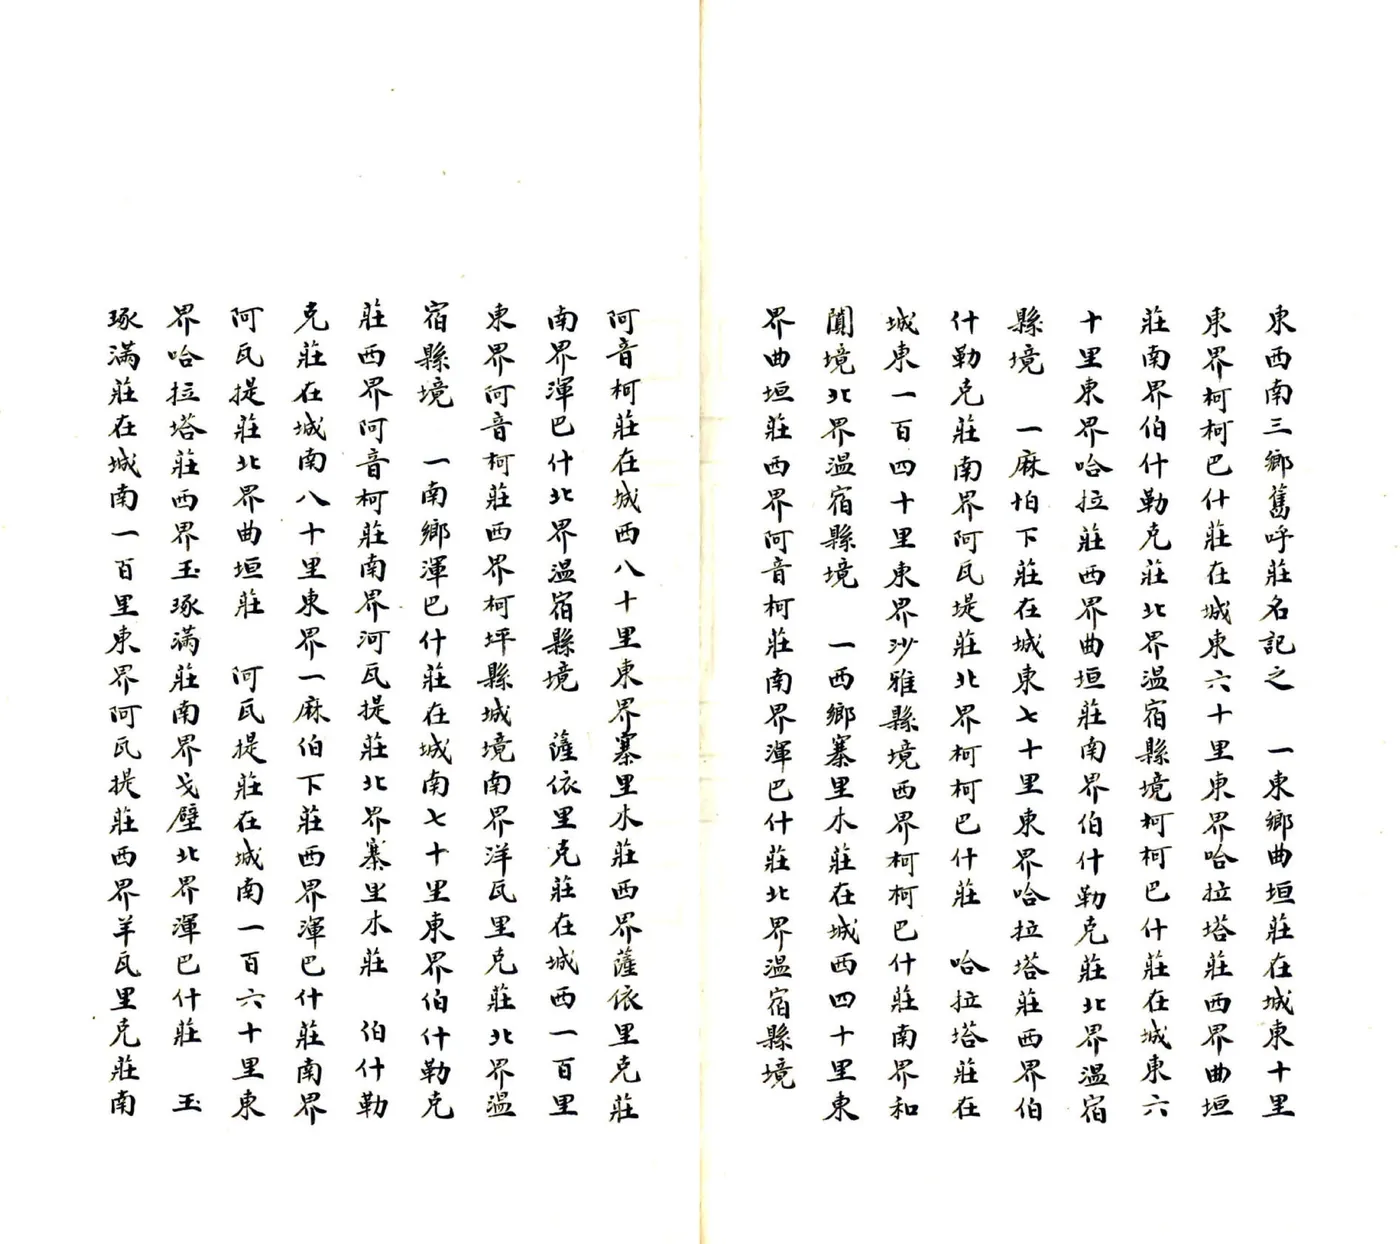 東西南三鄉舊呼莊名記之　一東鄉曲垣莊在城東十里
東界柯柯巴什莊在城東六十里東界哈拉塔莊西界曲垣
莊南界伯什勒克莊北界溫宿縣境柯柯巴什莊在城東六
十里東界哈拉莊西界曲垣莊南界伯什勒克莊北界溫宿
縣境　一麻怕下莊在城東七十里東界哈拉塔莊西界伯
什勒克莊南界阿瓦堤莊北界柯柯巴什莊　哈拉塔莊在
城東一百四十里東界沙雅縣境西界柯柯巴什莊南界和
闐境北界溫宿縣境　一西鄉寨里木莊在城西四十里東
界曲垣莊西界阿音柯莊南界渾巴什莊北界溫宿縣境
阿音柯莊在城西八十里東界寨里木莊西界薩依里克莊
南界渾巴什北界溫宿縣境　薩依里克莊在城西一百里
東界阿音柯莊西界柯坪縣城境南界洋瓦里克莊北界溫
宿縣境　一南鄉渾巴什莊在城南七十里東界伯什勒克
莊西界阿音柯莊南界河瓦提莊北界寨里木莊　伯什勒
克莊在城南八十里東界一麻伯下莊西界渾巴什莊南界
阿瓦提莊北界曲垣莊　阿瓦提莊在城南一百六十里東
界哈拉塔莊西界玉琢滿莊南界戈壁北界渾巴什莊　玉
琢滿莊在城南一百里東界阿瓦提莊西界羊瓦里克莊南